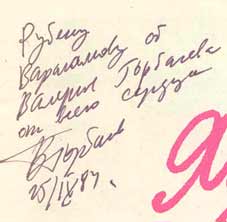 Рубену
Варагамову от
Валерия Горбачева
от всего сердца
ВГорбачев
25/IX 87г.
Я